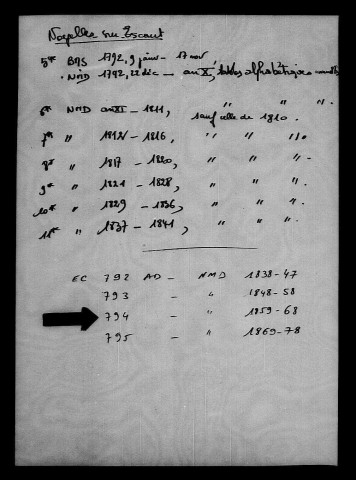 Noyelles sur Escaut
5e* BMS 1792, 9 janv - 17 nov
. NMD 1792, 22 déc - an X, tables alphabétiques
6e* NMD an XI - 1811, " " ".
sauf celle de 1810.
7e* " 1812 - 1816, " " ".
8e* " 1817 - 1820, " " ".
9e* " 1821 - 1828, " " ".
10e* " 1829 - 1836, " " ".
11e* " 1837 - 1841, " " ".
EC 792 AD - NMD 1838-47
793 - " 1848-58
794 - " 1859-68
795 - " 1869-78